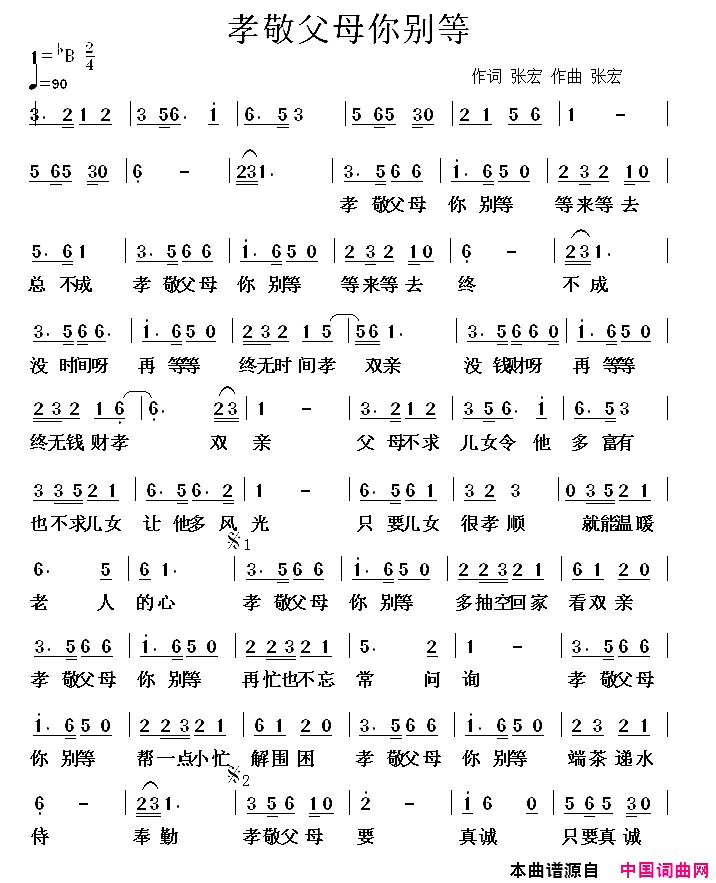 孝敬父母你别等
1=♭B 2/4
♩=90
作词 张宏 作曲 张宏
3. 2 1 2 | 3 56. i | 6. 5 3 | 5 65 30 | 2 1 5 6 | 1 - |
5 65 30 | 6 - | 231. | 3. 5 6 6 | i. 6 5 0 | 2 3 2 1 0 |
孝 敬父母 你 别等 等来等去
5. 6 1 | 3. 5 6 6 | i. 6 5 0 | 2 3 2 1 0 | 6 - | 2 3 1. |
总 不成 孝 敬父母 你 别等 等来等去 终 不成
3. 5 6 6. | i. 6 5 0 | 2 3 2 1 5 | 5 6 1. | 3. 5 6 6 0 | i. 6 5 0 |
没 时间呀 再 等等 终无时间孝 双亲 没 钱财呀 再 等等
2 3 2 1 6 | 6. 2 3 | 1 - | 3. 2 1 2 | 3 5 6. i | 6. 5 3 |
终无钱财孝 双 亲 父 母不求 儿女令 他 多 富有
3 3 5 2 1 | 6. 5 6. 2 | 1 - | 3. 5 6 1 | 3 2 3 | 0 3 5 2 1 |
也不求儿女 让 他多 风 光 只 要儿女 很孝顺 就能温暖
𝄋1
6. 5 | 6 1. | 3. 5 6 6 | i. 6 5 0 | 2 2 3 2 1 | 6 1 2 0 |
老 人 的心 孝 敬父母 你 别等 多抽空回家 看双亲
3. 5 6 6 | i. 6 5 0 | 2 2 3 2 1 | 5. 2 | 1 - | 3. 5 6 6 |
孝 敬父母 你 别等 再忙也不忘 常 问 询 孝 敬父母
i. 6 5 0 | 2 2 3 2 1 | 6 1 2 0 | 3. 5 6 6 | i. 6 5 0 | 2 3 2 1 |
你 别等 帮一点小忙 解围困 孝 敬父母 你 别等 端茶递水
𝄋2
6 - | 2 3 1. | 3 5 6 1 0 | 2 - | i 6 0 | 5 6 5 3 0 |
侍 奉勤 孝敬父母 要 真诚 只要真诚
本曲谱源自 中国词曲网